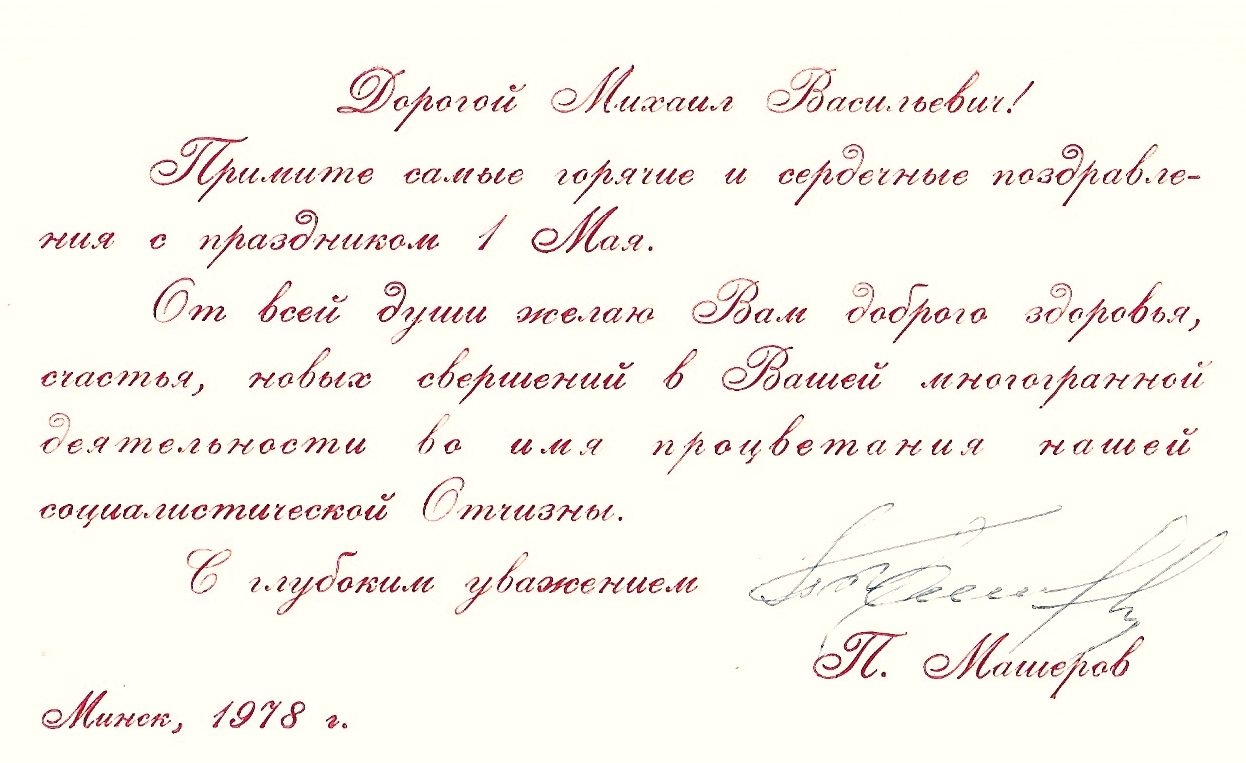 Дорогой Михаил Васильевич!
Примите самые горячие и сердечные поздравле-
ния с праздником 1 Мая.
От всей души желаю Вам доброго здоровья,
счастья, новых свершений в Вашей многогранной
деятельности во имя процветания нашей
социалистической Отчизны.
С глубоким уважением
П. Машеров
Минск, 1978 г.